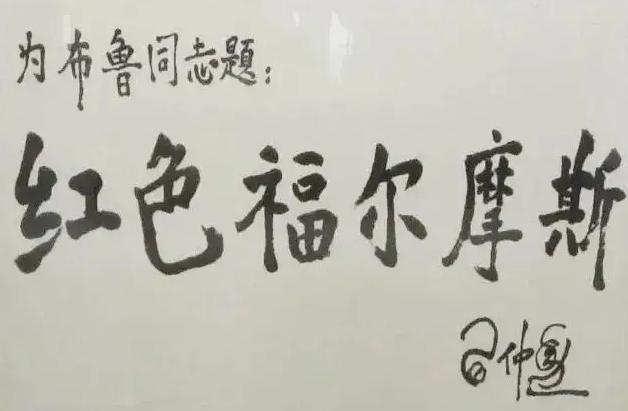 为布鲁同志題：
红色福尔摩斯
习仲勋